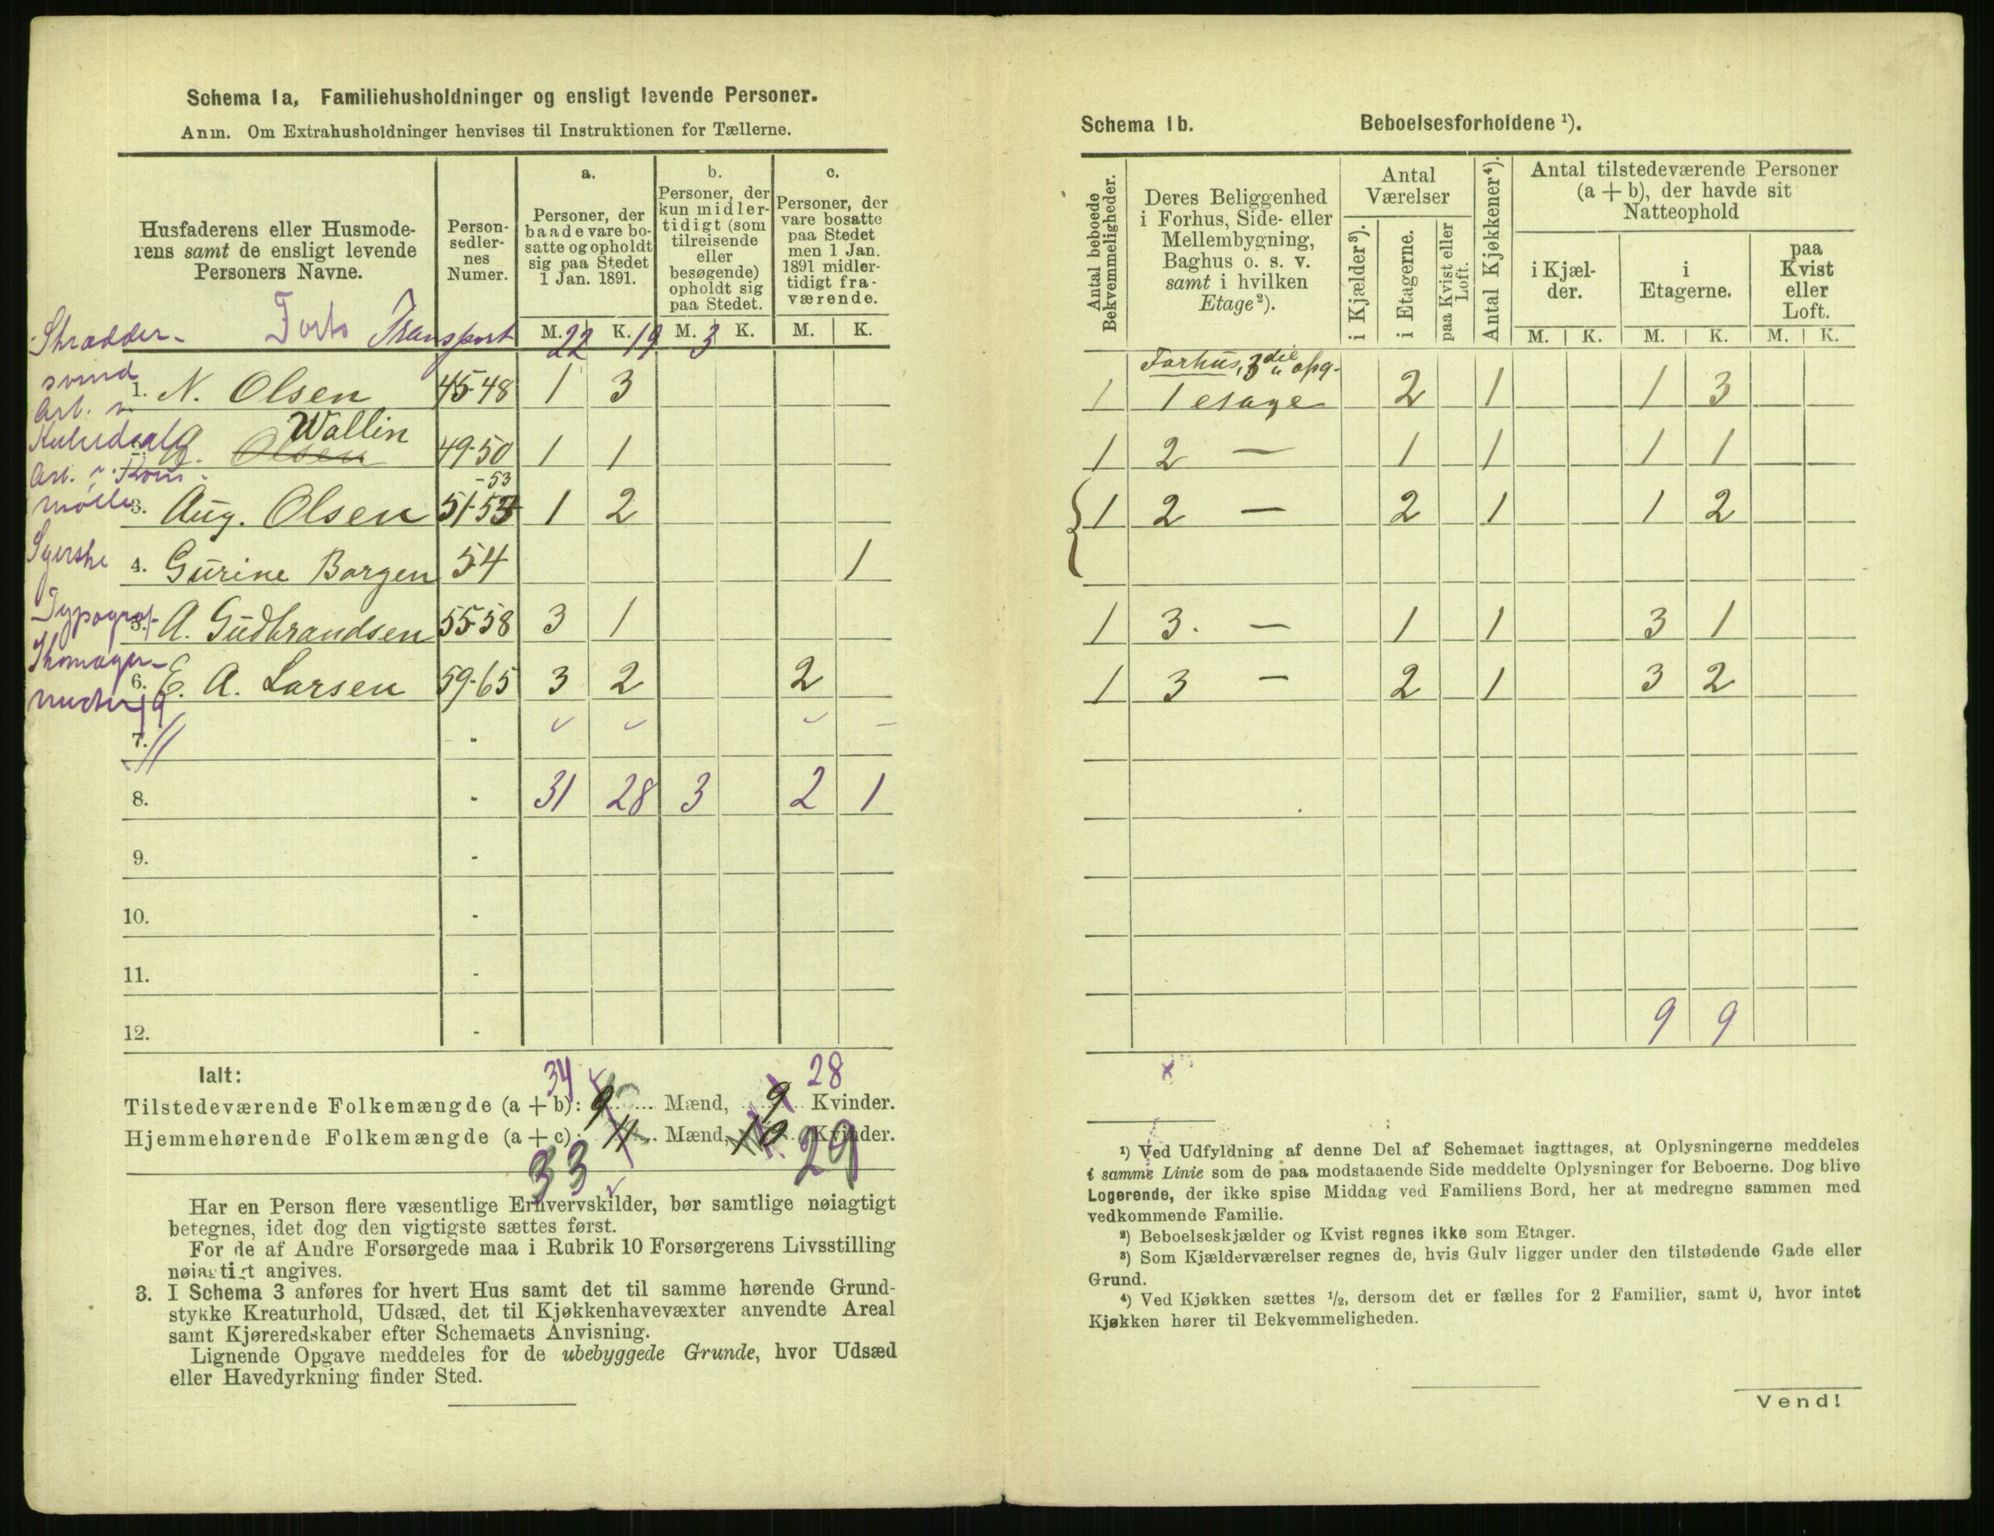 Schema 1a, Familiehusholdninger og ensligt levende Personer.
Anm. Om Extrahusholdninger henvises til Instruktionen for Tællerne.
Husfaderens eller Husmode-
rens samt de ensligt levende
Personers Navne.
Person-
sedler-
nes
Numer.
a.
Personer, der
baade vare bo-
satte og opholdt
sig paa Stedet
1 Jan. 1891.
b.
Personer, der
kun midler-
tidigt (som
tilreisende
eller
besøgende)
opholdt sig
paa Stedet.
c.
Personer, der
vare bosatte
paa Stedet
men 1 Jan.
1891 midler-
tidigt fra-
værende.
Transport M. 22 K. 19 M. 3 K. M. K.
1. N. Olsen 45-48 1 3
Wallin
Olsen 49-50 1 1
-53
3. Aug. Olsen 51-53 1 2
Syerske
4. Gurine Borgen 54 1
Typograf
5. A. Gudbrandsen 55-58 3 1
6. E. A. Larsen 59-65 3 2 2
7. -
8. - 31 28 3 2 1
9. -
10. -
11. -
12. -
Ialt: 34 28
Tilstedeværende Folkemængde (a + b): 9 Mænd, 9 Kvinder.
Hjemmehørende Folkemængde (a + c): 11 Mænd, 10 Kvinder.
33 29
Har en Person flere væsentlige Erhvervskilder, bør samtlige nøiagtigt
betegnes, idet dog den vigtigste sættes først.
For de af Andre Forsørgede maa i Rubrik 10 Forsørgerens Livsstilling
nøiagtigt angives.
3. I Schema 3 anføres for hvert Hus samt det til samme hørende Grund-
stykke Kreaturhold, Udsæd, det til Kjøkkenhavevæxter anvendte Areal
samt Kjøreredskaber efter Schemaets Anvisning.
Lignende Opgave meddeles for de ubebyggede Grunde, hvor Udsæd
eller Havedyrkning finder Sted.
Schema 1b. Beboelsesforholdene ¹).
Antal beboede
Bekvemmeligheder.
Deres Beliggenhed
i Forhus, Side- eller
Mellembygning,
Baghus o. s. v.
samt i hvilken
Etage ²).
Antal
Værelser
i Kjælder ³).
i Etagerne.
paa Kvist eller
Loft.
Antal Kjøkkener ⁴).
Antal tilstedeværende Personer
(a + b), der havde sit
Natteophold
i Kjæl-
der.
i
Etagerne.
paa
Kvist
eller
Loft.
M. K. M. K. M. K.
Forhus, 3die opg.
1 1 etage 2 1 1 3
1 2 — 1 1 1 1
1 2 — 2 1 1 2
1 3. — 1 1 3 1
1 3 — 2 1 3 2
9 9
¹) Ved Udfyldning af denne Del af Schemaet iagttages, at Oplysningerne meddeles
i samme Linie som de paa modstaaende Side meddelte Oplysninger for Beboerne. Dog blive
Logerende, der ikke spise Middag ved Familiens Bord, her at medregne sammen med
vedkommende Familie.
²) Beboelseskjælder og Kvist regnes ikke som Etager.
³) Som Kjælderværelser regnes de, hvis Gulv ligger under den tilstødende Gade eller
Grund.
⁴) Ved Kjøkken sættes ½, dersom det er fælles for 2 Familier, samt 0, hvor intet
Kjøkken hører til Bekvemmeligheden.
Vend!